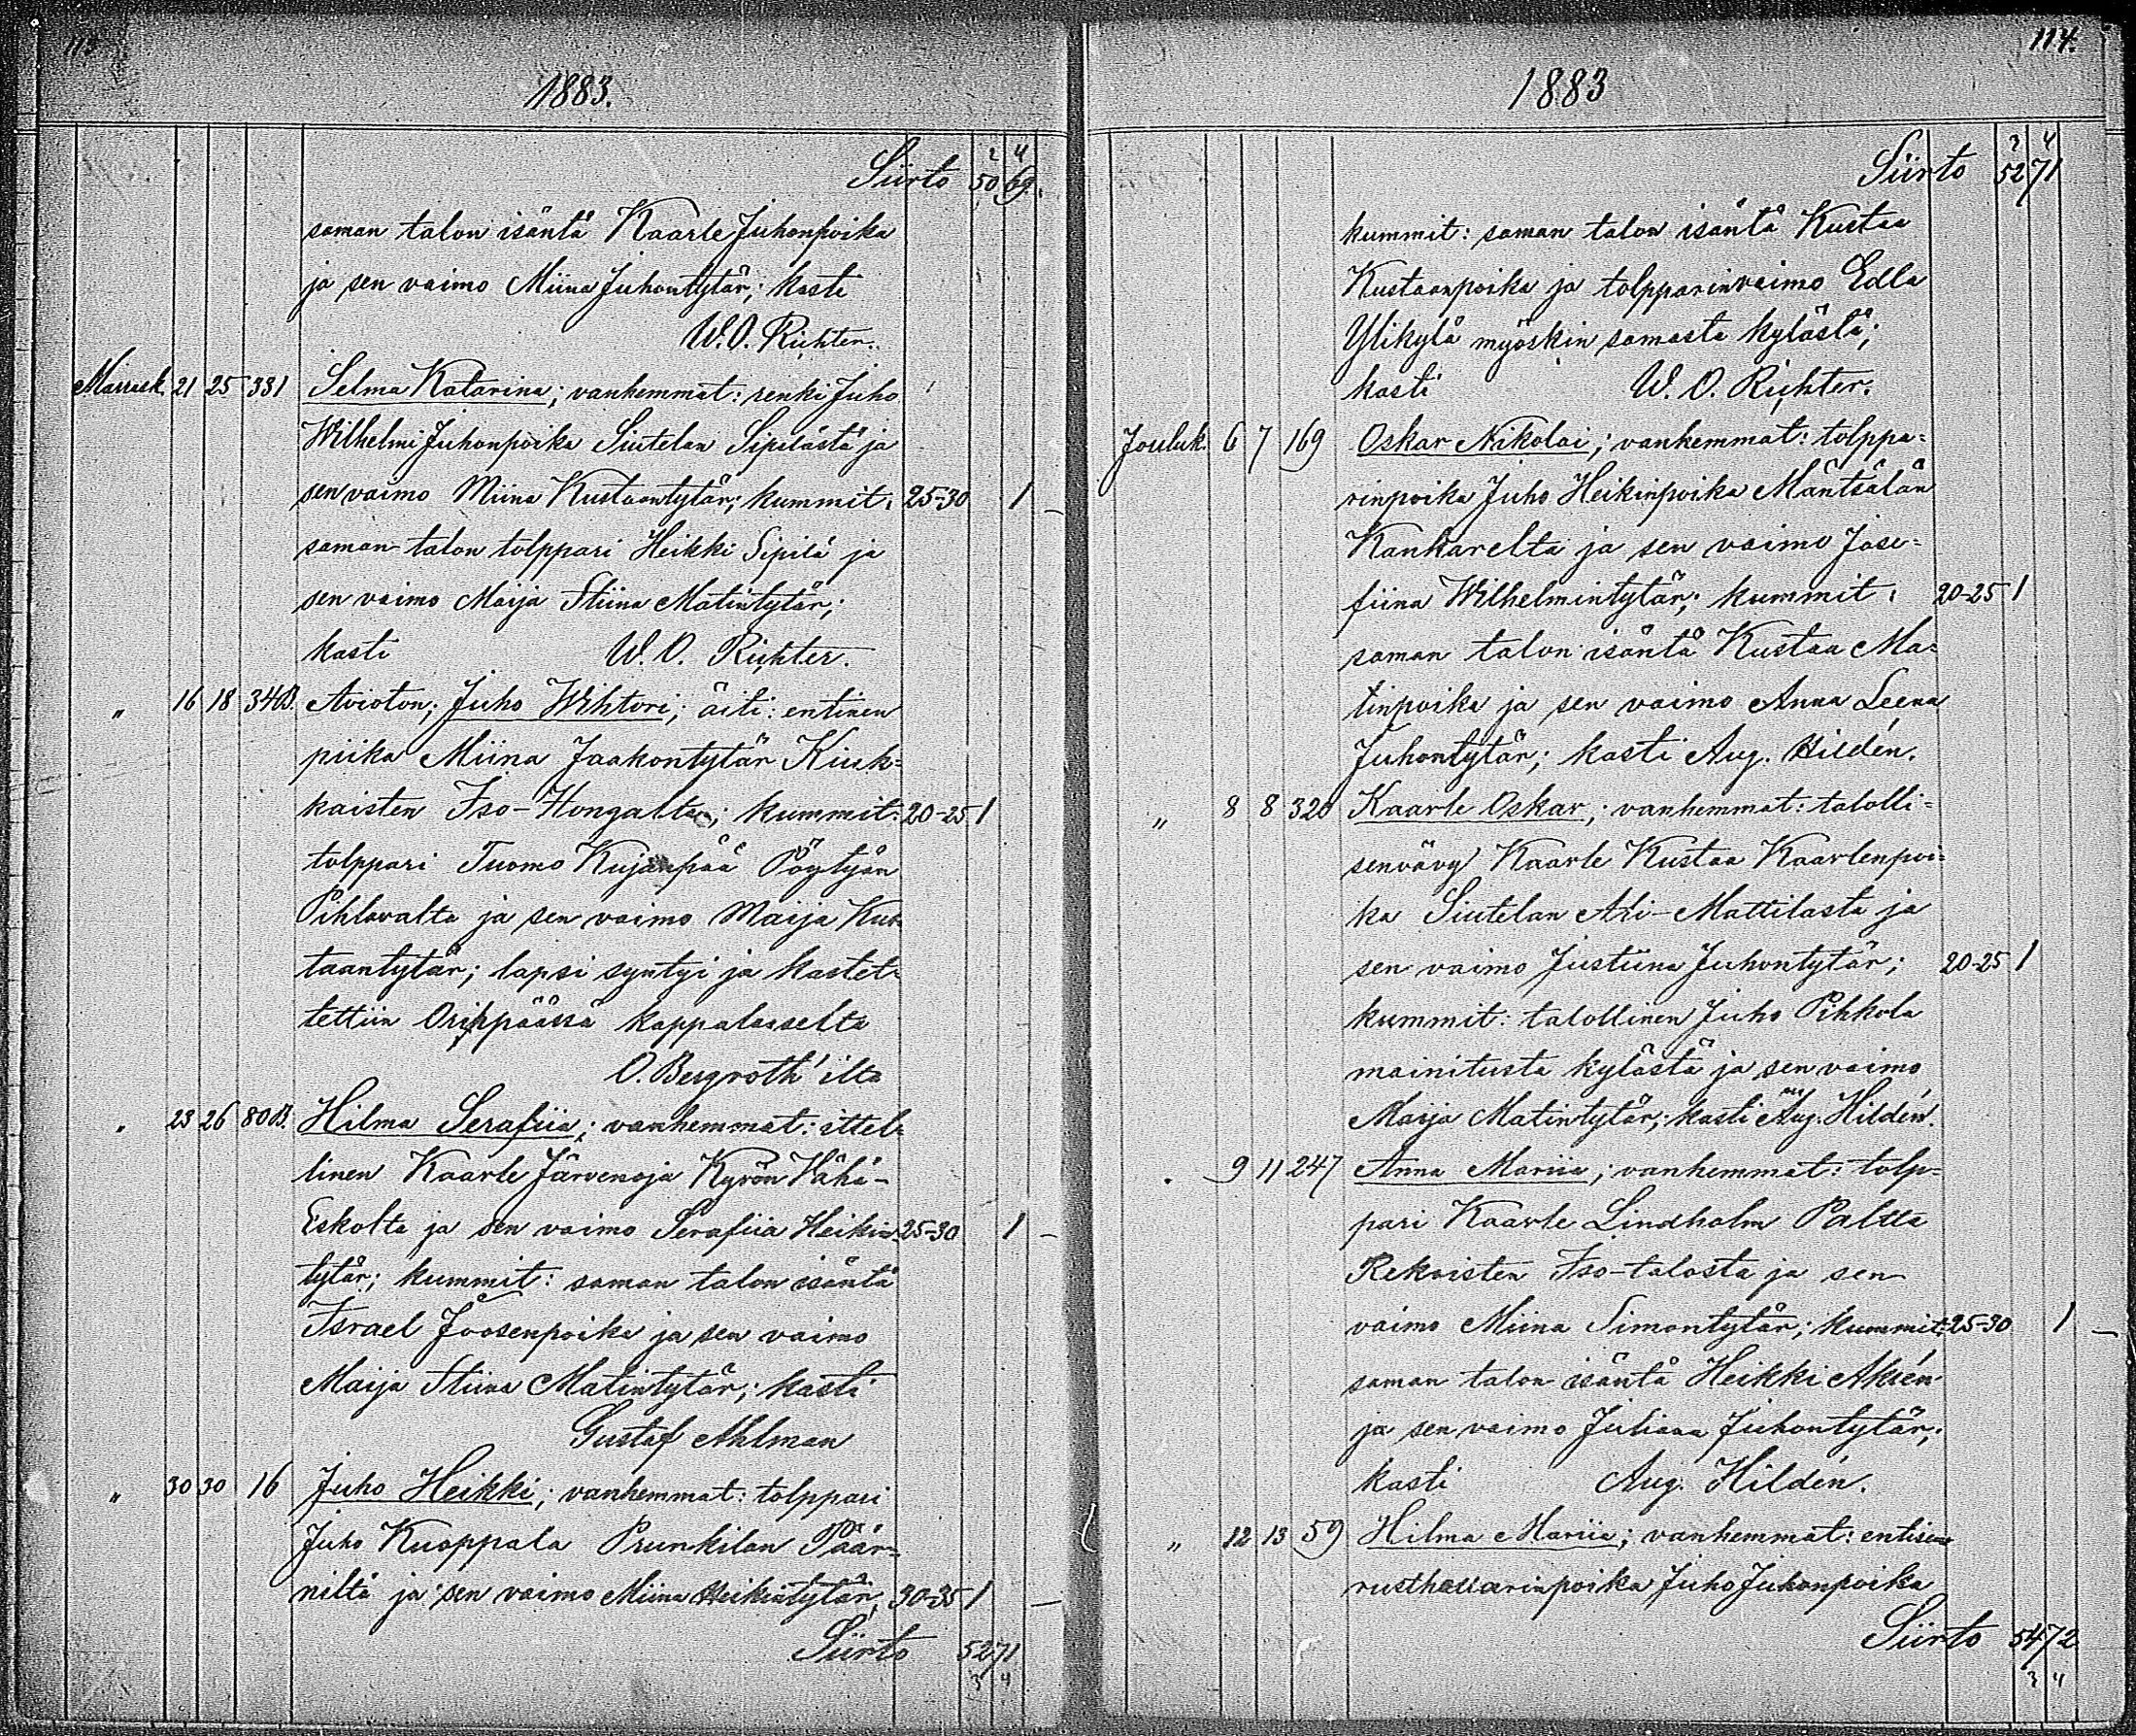 113
1883.
2 4
Siirto 50 69.
saman talon isäntä Kaarle Juhonpoika
ja sen vaimo Miina Juhontytär; kasti
W.O. Richter.
Marrask. 21 25 331 Selma Katarina; vanhemmat: renki Juho
Wilhelmi Juhonpoika Siutelan Sipilästä ja
sen vaimo Miina Kustaantytär; kummit: 25-30 1 –
saman talon tolppari Heikki Sipilä ja
sen vaimo Maija Stiina Matintytär;
kasti W.O. Richter.
„ 16 18 34B. Avioton; Juho Wihtori; äiti: entinen
piika Miina Jaakontytär Kiuk=
kaisten Iso-Hongalta; kummit: 20-25 1
tolppari Tuomo Kujanpää Pöytyän
Pihlavalta ja sen vaimo Maija Kus=
taantytär; lapsi syntyi ja kastet=
tettiin Oripäässä kappalaiselta
O. Bergroth'ilta
„ 23 26 80B. Hilma Serafiia; vanhemmat: ittel=
linen Kaarle Järvenoja Kyrön Vähä-
Eskolta ja sen vaimo Serafiia Heikin= 25-30 1 –
tytär; kummit: saman talon isäntä
Israel Joosenpoika ja sen vaimo
Maija Stiina Matintytär; kasti
Gustaf Ahlman
„ 30 30 16 Juho Heikki; vanhemmat: tolppari
Juho Kuoppala Prunkilan Päär=
niltä ja sen vaimo Miina Heikintytär; 30-35 1 –
Siirto 52 71
3 4
114.
1883
3 4
Siirto 52 71
kummit: saman talon isäntä Kustaa
Kustaanpoika ja tolpparinvaimo Edla
Ylikylä myöskin samasta kylästä;
kasti W.O. Richter.
Jouluk. 6 7 169 Oskar Nikolai; vanhemmat: tolppa=
rinpoika Juho Heikinpoika Mäntsälän
Kankarelta ja sen vaimo Jose=
fiina Wilhelmintytär; kummit: 20-25 1
saman talon isäntä Kustaa Ma=
tinpoika ja sen vaimo Anna Leena
Juhontytär; kasti Aug. Hildén.
„ 8 8 320 Kaarle Oskar; vanhemmat: talolli=
senvävy Kaarle Kustaa Kaarlenpoi=
ka Siutelan Ali-Mattilasta ja
sen vaimo Justiina Juhontytär; 20-25 1
kummit: talollinen Juho Pihkola
mainitusta kylästä ja sen vaimo
Maija Matintytär; kasti Aug. Hildén.
„ 9 11 247 Anna Mariia; vanhemmat: tolp=
pari Kaarle Lindholm Paltta
Rekoisten Iso-talosta ja sen
vaimo Miina Simontytär; kummit: 25-30 1 –
saman talon isäntä Heikki Akién
ja sen vaimo Juliana Juhontytär;
kasti Aug. Hildén.
„ 12 13 59 Hilma Mariia; vanhemmat: entisen
rusthollarinpoika Juho Juhonpoika
Siirto 54 72
3 4